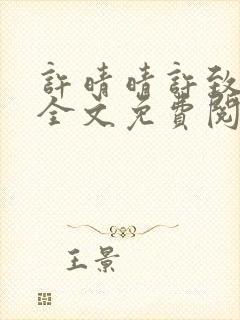 許晴晴許致
全文免費閱
王景